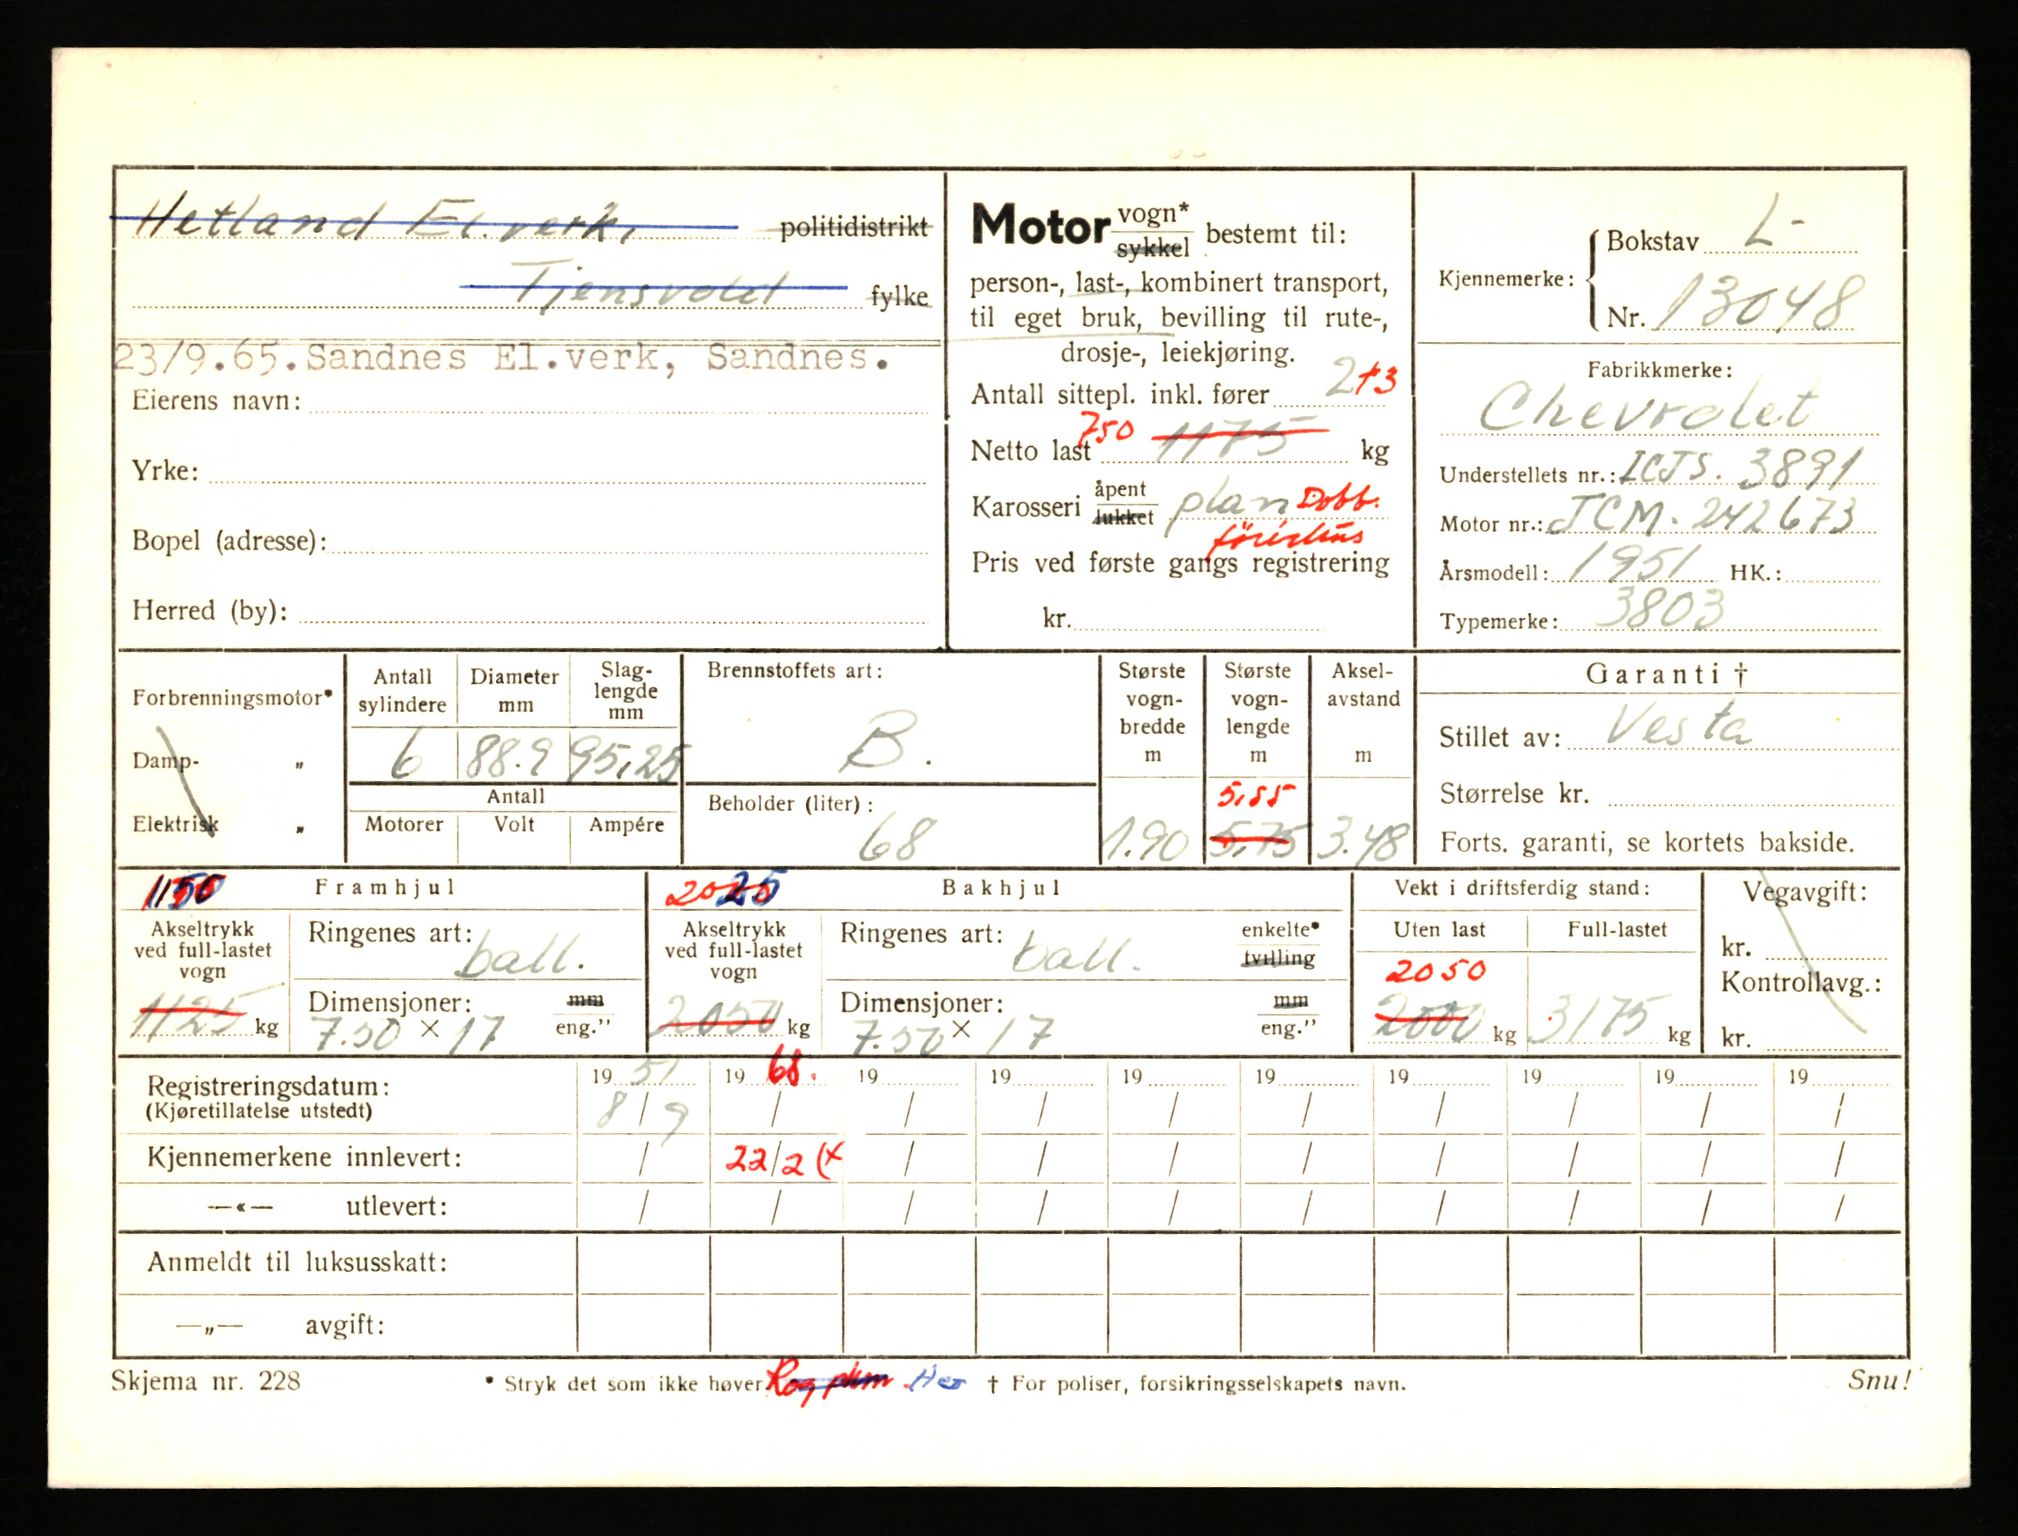 Hetland El.verk, politidistrikt
Tjensvold fylke
23/9.65.Sandnes El.verk, Sandnes.
Eierens navn:
Yrke:
Bopel (adresse):
Herred (by):
Motor vogn* sykkel bestemt til:
person-, last-, kombinert transport,
til eget bruk, bevilling til rute-,
drosje-, leiekjøring.
Antall sittepl. inkl. fører 2+3
Netto last 750 1175 kg
Karosseri åpent lukket plan Dobb.
førerhus
Pris ved første gangs registrering
kr.
Kjennemerke: Bokstav L-
Nr. 13048
Fabrikkmerke:
Chevrolet
Understellets nr.: ICJS. 3891
Motor nr.: JCM. 242673
Årsmodell: 1951 HK.:
Typemerke: 3803
Forbrenningsmotor*
Damp- "
Elektrisk "
Antall sylindere
6
Diameter mm
88.9
Slag-lengde mm
95,25
Antall
Motorer Volt Ampére
Brennstoffets art:
B.
Beholder (liter):
68
Største vogn-bredde m
1.90
Største vogn-lengde m
5,55
5,75
Aksel-avstand m
3.48
Garanti †
Stillet av: Vesta
Størrelse kr.
Forts. garanti, se kortets bakside.
1150 Framhjul
Akseltrykk ved full-lastet vogn
1125 kg
Ringenes art: ball.
Dimensjoner: mm
7.50 × 17 eng."
2025 Bakhjul
Akseltrykk ved full-lastet vogn
2050 kg
Ringenes art: ball. enkelte* tvilling
Dimensjoner: mm
7.50 × 17 eng."
Vekt i driftsferdig stand:
Uten last Full-lastet
2050
2000 kg 3175 kg
Vegavgift:
kr.
Kontrollavg.:
kr.
Registreringsdatum: 19 51 19 68. 19 19 19 19 19 19 19 19
(Kjøretillatelse utstedt) 8/9 / / / / / / / / /
Kjennemerkene innlevert: / 22/2 (x / / / / / / / /
—«— utlevert: / / / / / / / / / /
Anmeldt til luksusskatt:
—„— avgift:
Skjema nr. 228 * Stryk det som ikke høver. † For poliser, forsikringsselskapets navn. Snu!